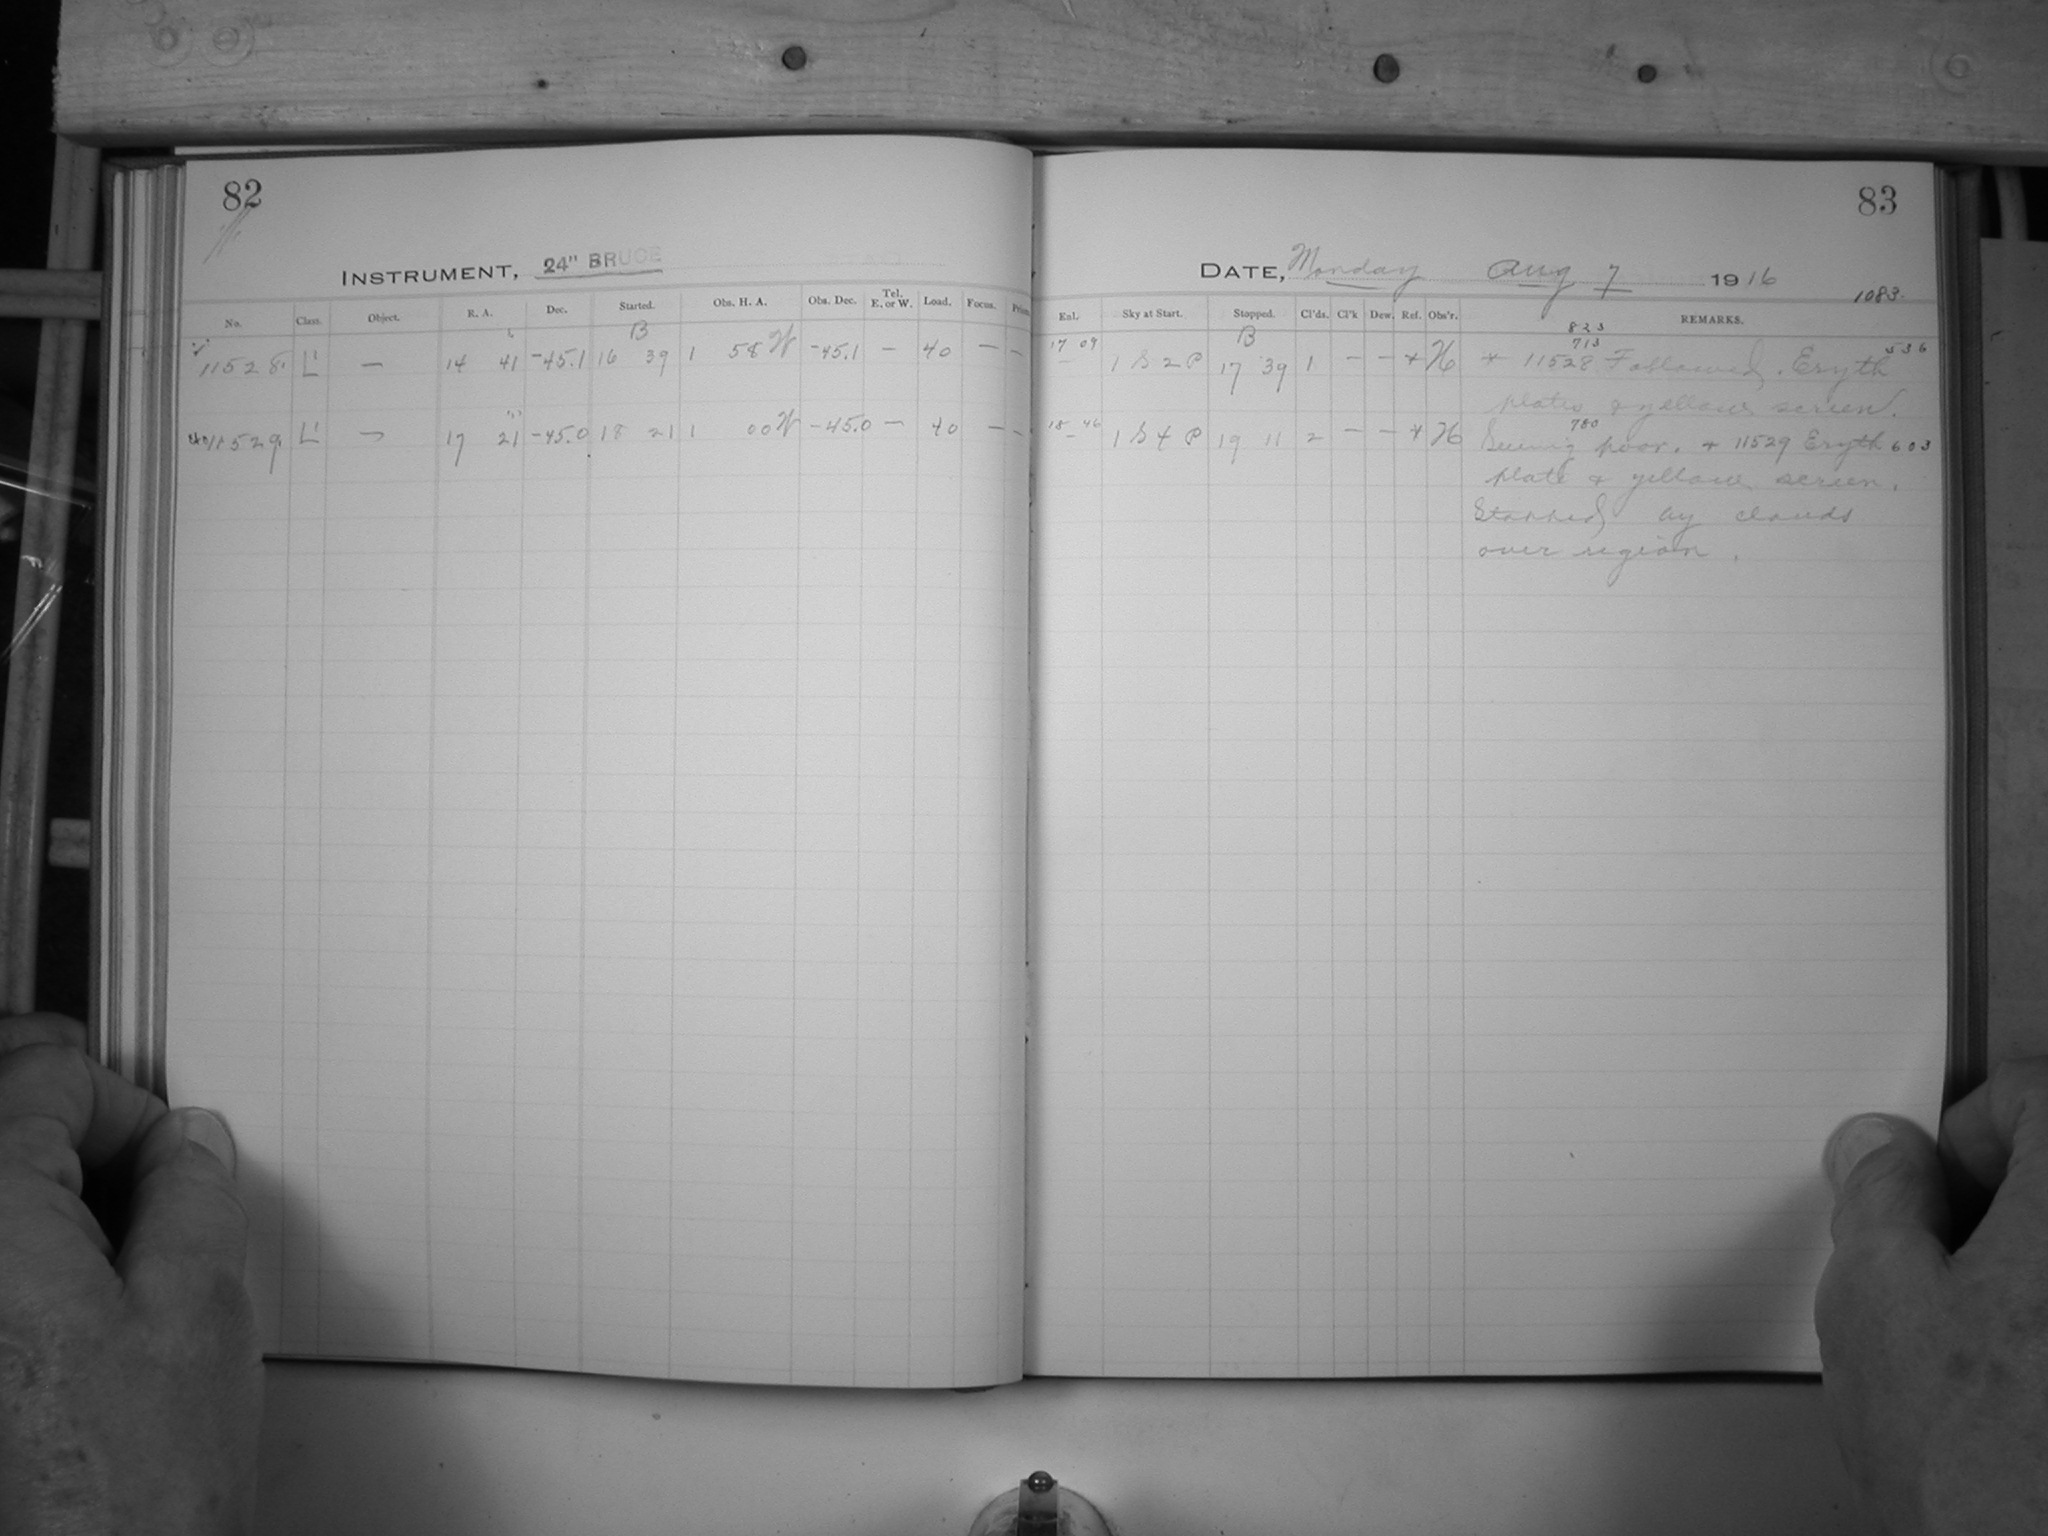 82
INSTRUMENT, 24" BRUCE
No. Class. Object. R. A. Dec. Started. Obs. H. A. Obs. Dec. Tel. E. or W. Load. Focus.
B
11528 L — 14 41 -45.1 16 39 1 58 W -45.1 — 40 — —
11529 L — 17 21 -45.0 18 21 1 00 W -45.0 — 40 — —
83
DATE, Monday Aug 7 1916
1083.
Enl. Sky at Start. Stopped. Cl'ds. Cl'k Dew. Ref. Obs'r. REMARKS.
B 823
17 09 713 536
— 1 S 2 P 17 39 1 — — * H * 11528 Followed. Eryth
plates & yellow screen.
18 46 780
— 1 S 4 P 19 11 2 — — * H Seeing poor. * 11529 Eryth 603
plate & yellow screen.
Stopped by clouds
over region.